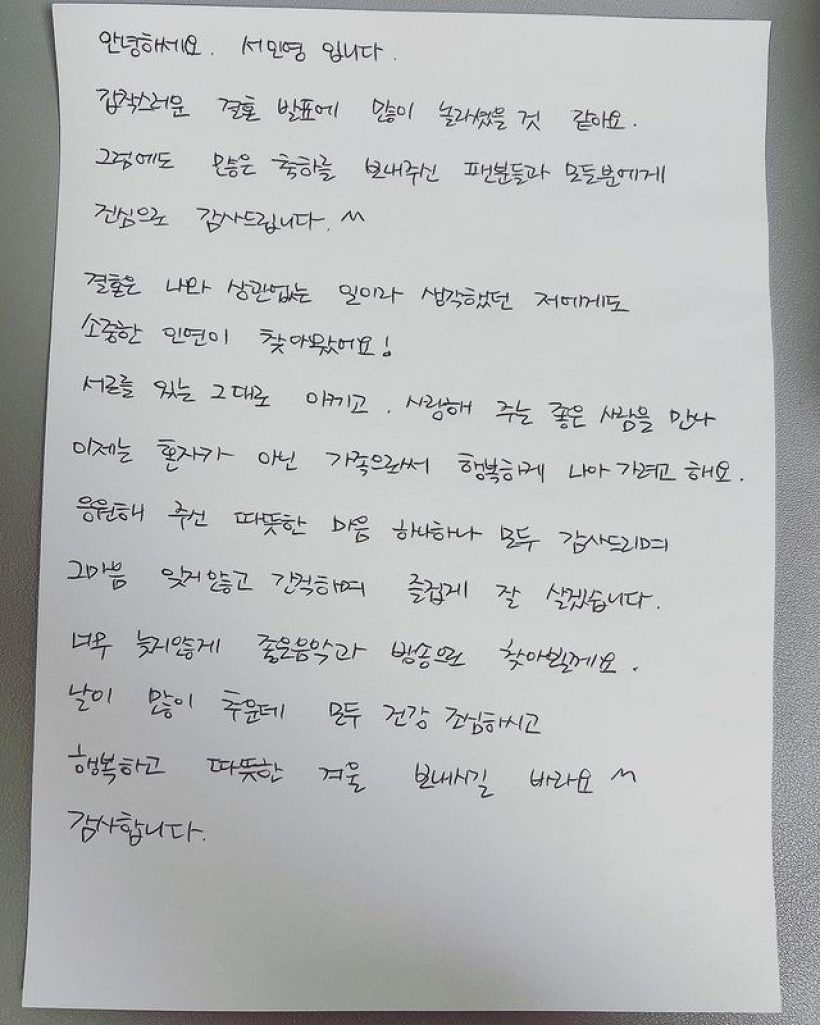 안녕하세요. 서인영 입니다.
갑작스러운 결혼 발표에 많이 놀라셨을 것 같아요.
그럼에도 많은 축하를 보내주신 팬분들과 모든분에게
진심으로 감사드립니다. ^^
결혼은 나와 상관없는 일이라 생각했던 저에게도
소중한 인연이 찾아왔어요!
서로를 있는 그대로 아끼고, 사랑해 주는 좋은 사람을 만나
이제는 혼자가 아닌 가족으로써 행복하게 나아 가려고 해요.
응원해 주신 따뜻한 마음 하나하나 모두 감사드리며
그마음 잊지않고 간직하며 즐겁게 잘 살겠습니다.
너무 늦지않게 좋은음악과 방송으로 찾아뵐께요.
날이 많이 추운데 모두 건강 조심하시고
행복하고 따뜻한 겨울 보내시길 바라요 ^^
감사합니다.